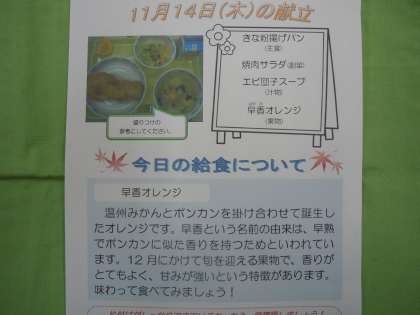 11月14日(木)の献立
きな粉揚げパン
(主食)
焼肉サラダ(副菜)
エビ団子スープ
(汁物)
早香オレンジ
(果物)
盛りつけの
参考にしてください。
今日の給食について
早香オレンジ
温州みかんとポンカンを掛け合わせて誕生し
たオレンジです。早香という名前の由来は、早熟
でポンカンに似た香りを持つためといわれてい
ます。12月にかけて旬を迎える果物で、香りが
とてもよく、甘みが強いという特徴があります。
味わって食べてみましょう!